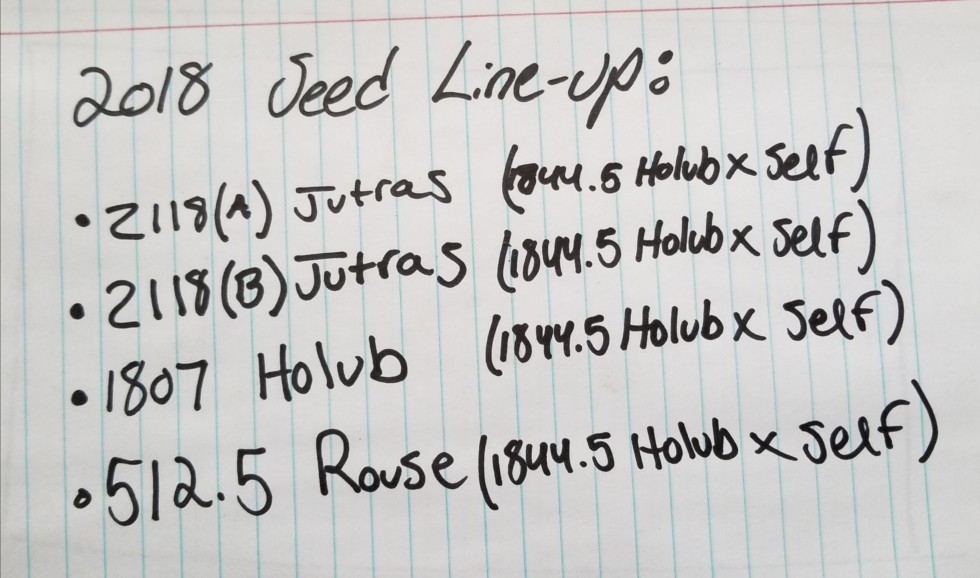 2018 Seed Line-up:
• 2118(A) Jutras (1844.5 Holub x Self)
• 2118(B) Jutras (1844.5 Holub x Self)
• 1807 Holub (1844.5 Holub x Self)
• 512.5 Rouse (1844.5 Holub x Self)